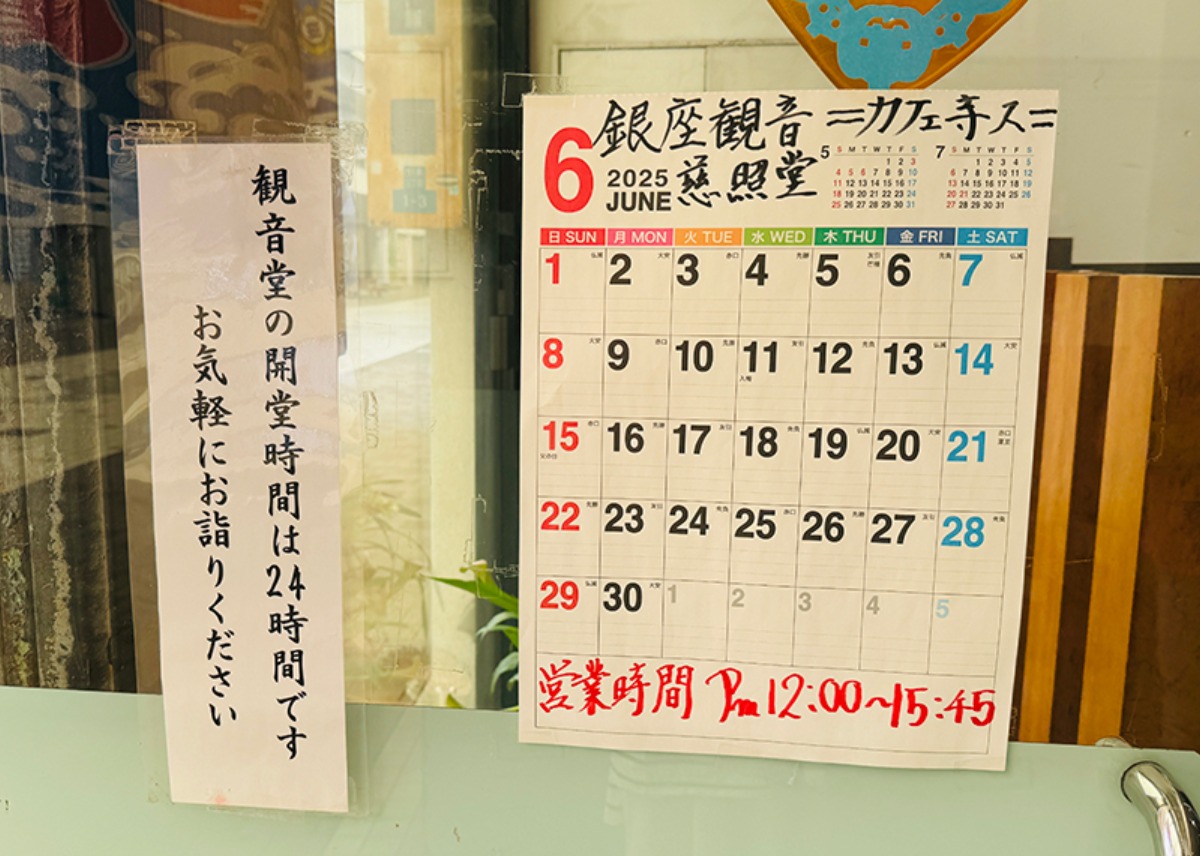 観音堂の開堂時間は24時間です
お気軽にお詣りください
銀座観音
慈照堂
=カフェ寺ス=
6
2025
JUNE
5
S M T W T F S
1 2 3
4 5 6 7 8 9 10
11 12 13 14 15 16 17
18 19 20 21 22 23 24
25 26 27 28 29 30 31
7
S M T W T F S
1 2 3 4 5
6 7 8 9 10 11 12
13 14 15 16 17 18 19
20 21 22 23 24 25 26
27 28 29 30 31
日 SUN 月 MON 火 TUE 水 WED 木 THU 金 FRI 土 SAT
1 仏滅 2 大安 3 赤口 4 先勝 5 友引 芒種 6 先負 7 仏滅
8 大安 9 赤口 10 先勝 11 友引 入梅 12 先負 13 仏滅 14 大安
15 赤口 父の日 16 先勝 17 友引 18 先負 19 仏滅 20 大安 21 赤口 夏至
22 先勝 23 友引 24 先負 25 赤口 26 先勝 27 友引 28 先負
29 仏滅 30 大安 1 2 3 4 5
営業時間 Pm12:00~15:45